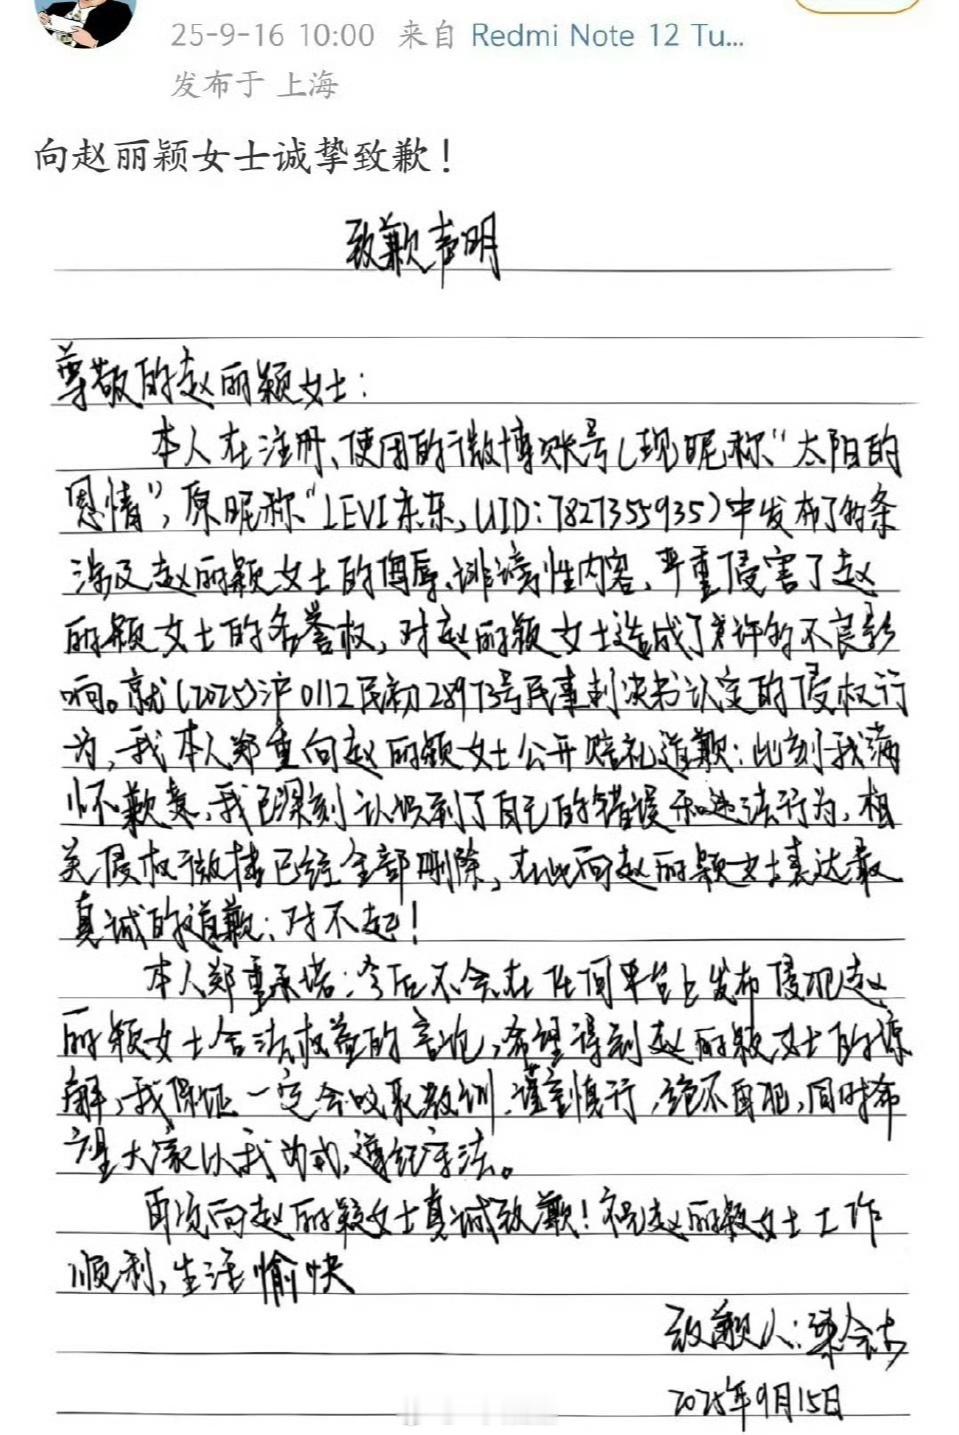 25-9-16 10:00 来自 Redmi Note 12 Tu...
发布于 上海
向赵丽颖女士诚挚致歉！
致歉声明
尊敬的赵丽颖女士：
本人在注册、使用的微博账号（现昵称“太阳的
恩情”，原昵称“LEVI东东，UID：7827355935）中发布了的条
涉及赵丽颖女士的侮辱、诽谤性内容，严重侵害了赵
丽颖女士的名誉权，对赵丽颖女士造成了的不良影
响。就（2025）沪0112民初28973号民事判决书认定的侵权行
为，我本人郑重向赵丽颖女士公开赔礼道歉：此刻我满
怀歉意，我已深刻认识到了自己的错误和违法行为，相
关侵权微博已经全部删除，在此向赵丽颖女士表达最
真诚的道歉：对不起！
本人郑重承诺：今后不会在任何平台上发布侵犯赵
丽颖女士合法权益的言论，希望得到赵丽颖女士的谅
解，我保证一定会吸取教训、谨言慎行，绝不再犯，同时希
望大家以我为戒，遵纪守法。
再次向赵丽颖女士真诚致歉！祝赵丽颖女士工作
顺利，生活愉快
致歉人：
2025年9月15日